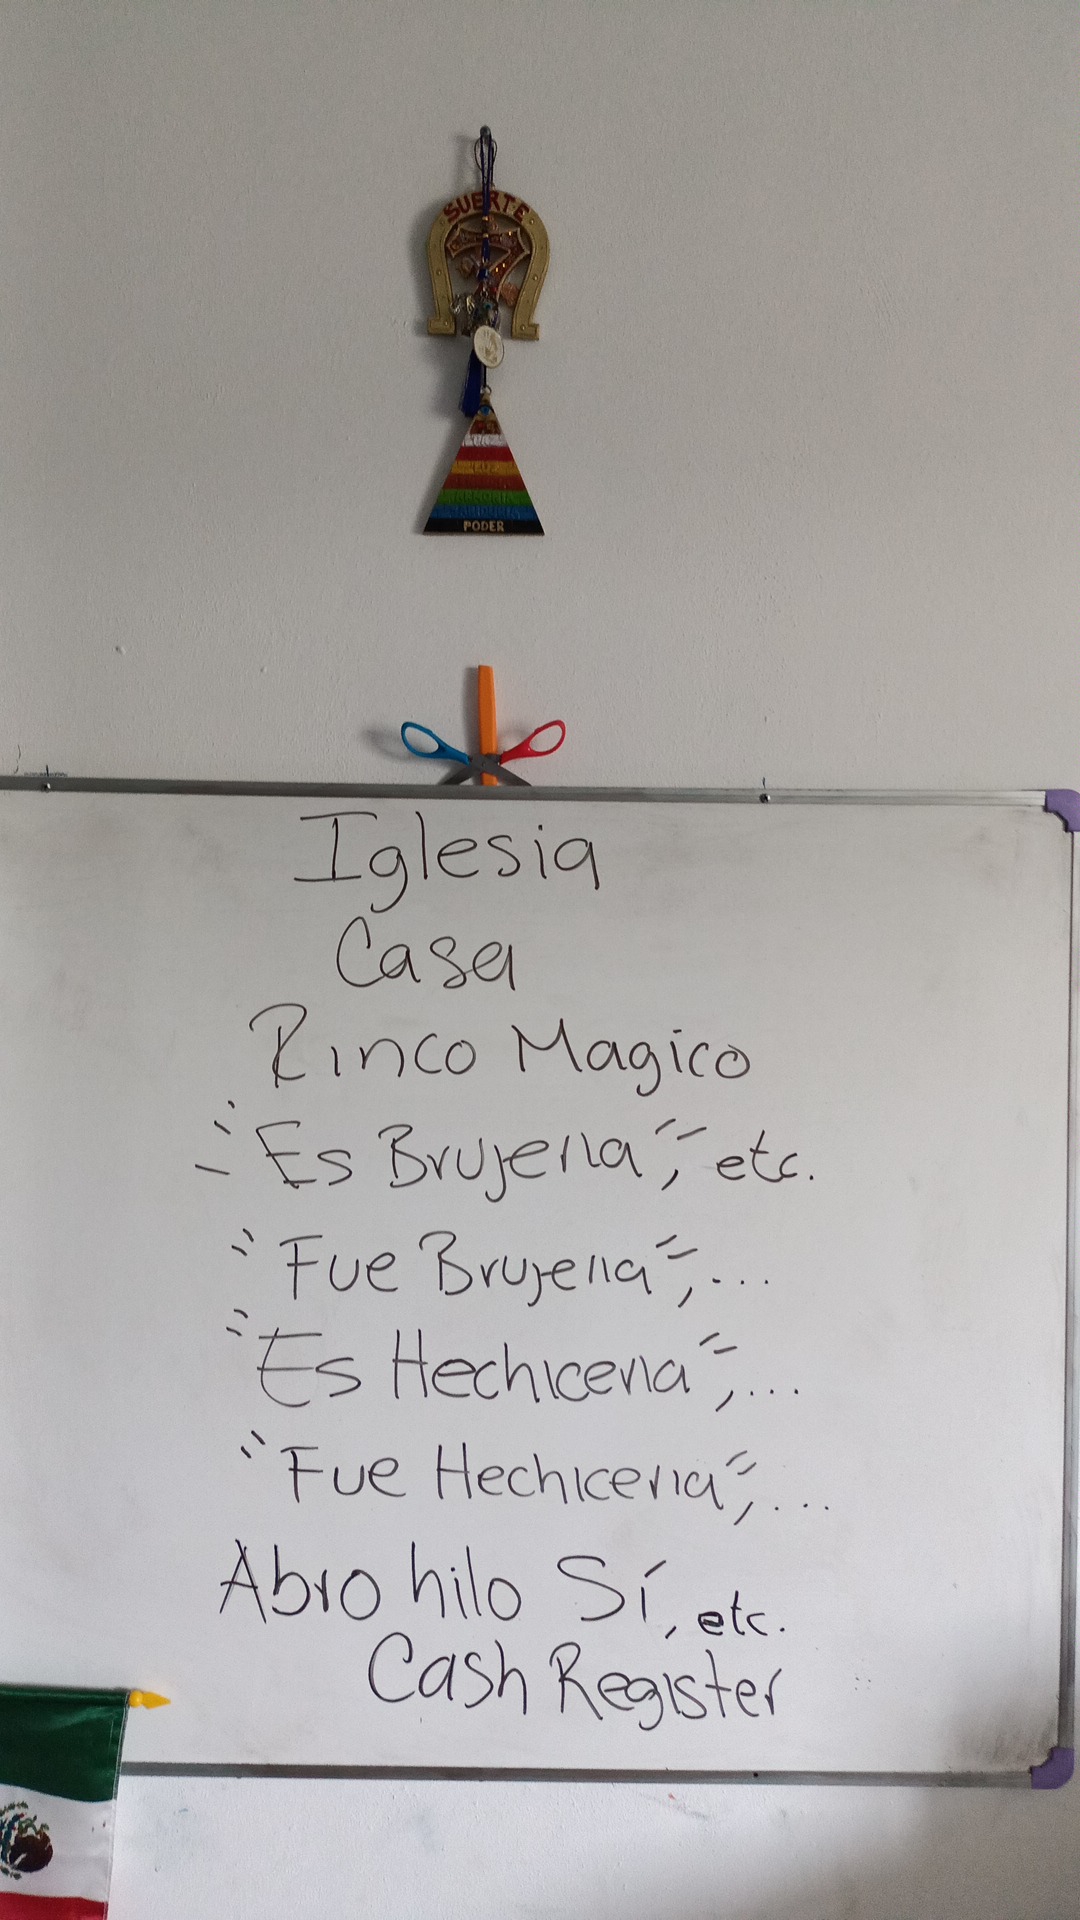 SUERTE
7
LUZ
PODER
Iglesia
Casa
Rinco Magico
"Es Brujeria", etc.
"Fue Brujeria",...
"Es Hechiceria",...
"Fue Hechiceria",...
Abro hilo Sí, etc.
Cash Register